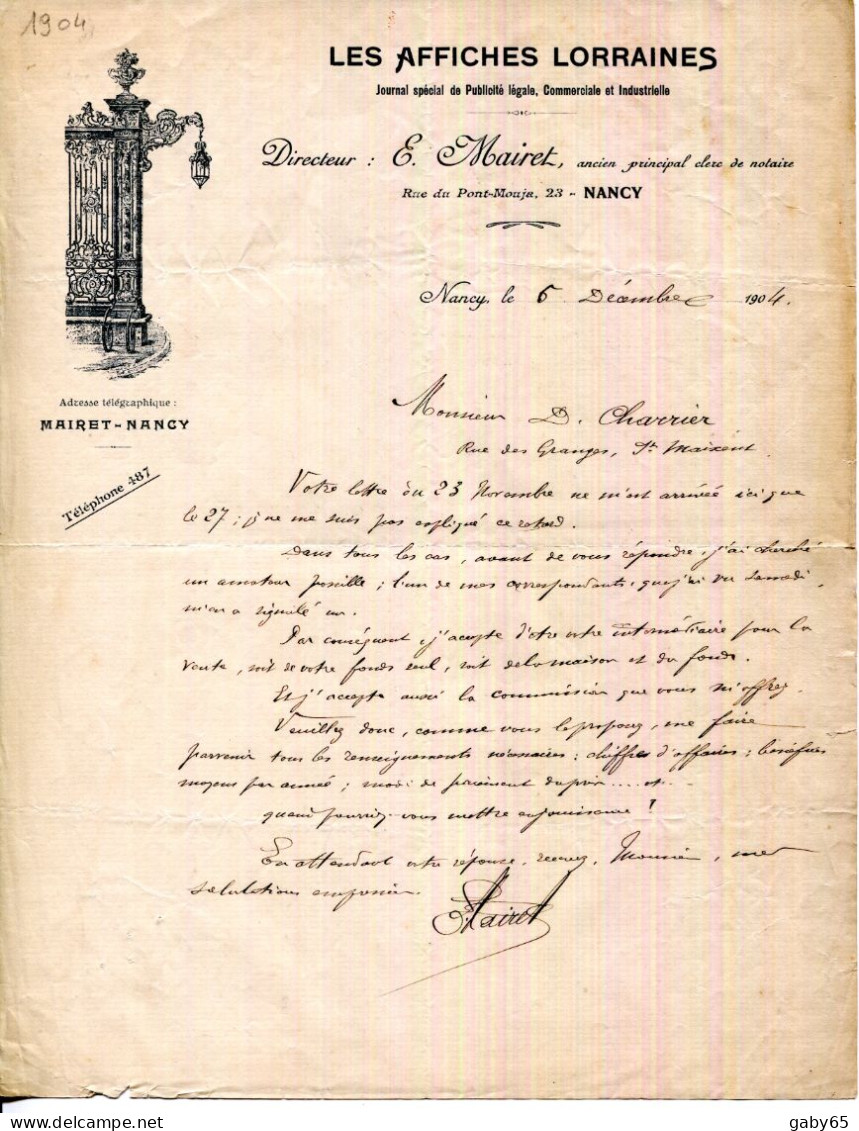 1904
LES AFFICHES LORRAINES
Journal spécial de Publicité légale, Commerciale et Industrielle
Directeur : E. Mairet, ancien principal clerc de notaire
Rue du Pont-Mouja, 23 - NANCY
Nancy, le 6 Décembre 1904.
Adresse télégraphique :
MAIRET-NANCY
Téléphone 487
Monsieur D. Charrier
Rue des Granges, St Maixent.
Votre lettre du 23 Novembre ne m'est arrivée ici que
le 27 ; je ne me suis pas expliqué ce retard.
Dans tous les cas, avant de vous répondre, j'ai cherché
un amateur possible ; l'un de mes correspondants, que j'ai vu Samedi,
m'en a signalé un.
Par conséquent, j'accepte d'être votre intermédiaire pour la
vente, soit de votre fonds seul, soit de la maison et du fonds.
Et j'accepte aussi la commission que vous m'offrez.
Veuillez donc, comme vous le proposez, me faire
parvenir tous les renseignements nécessaires : chiffres d'affaires ; bénéfices
moyens par année ; mode de paiement du prix .... et..
quand pourriez-vous mettre en jouissance !
En attendant votre réponse, recevez, Monsieur, mes
salutations empressées.
E. Mairet
delcampe.net
gaby65